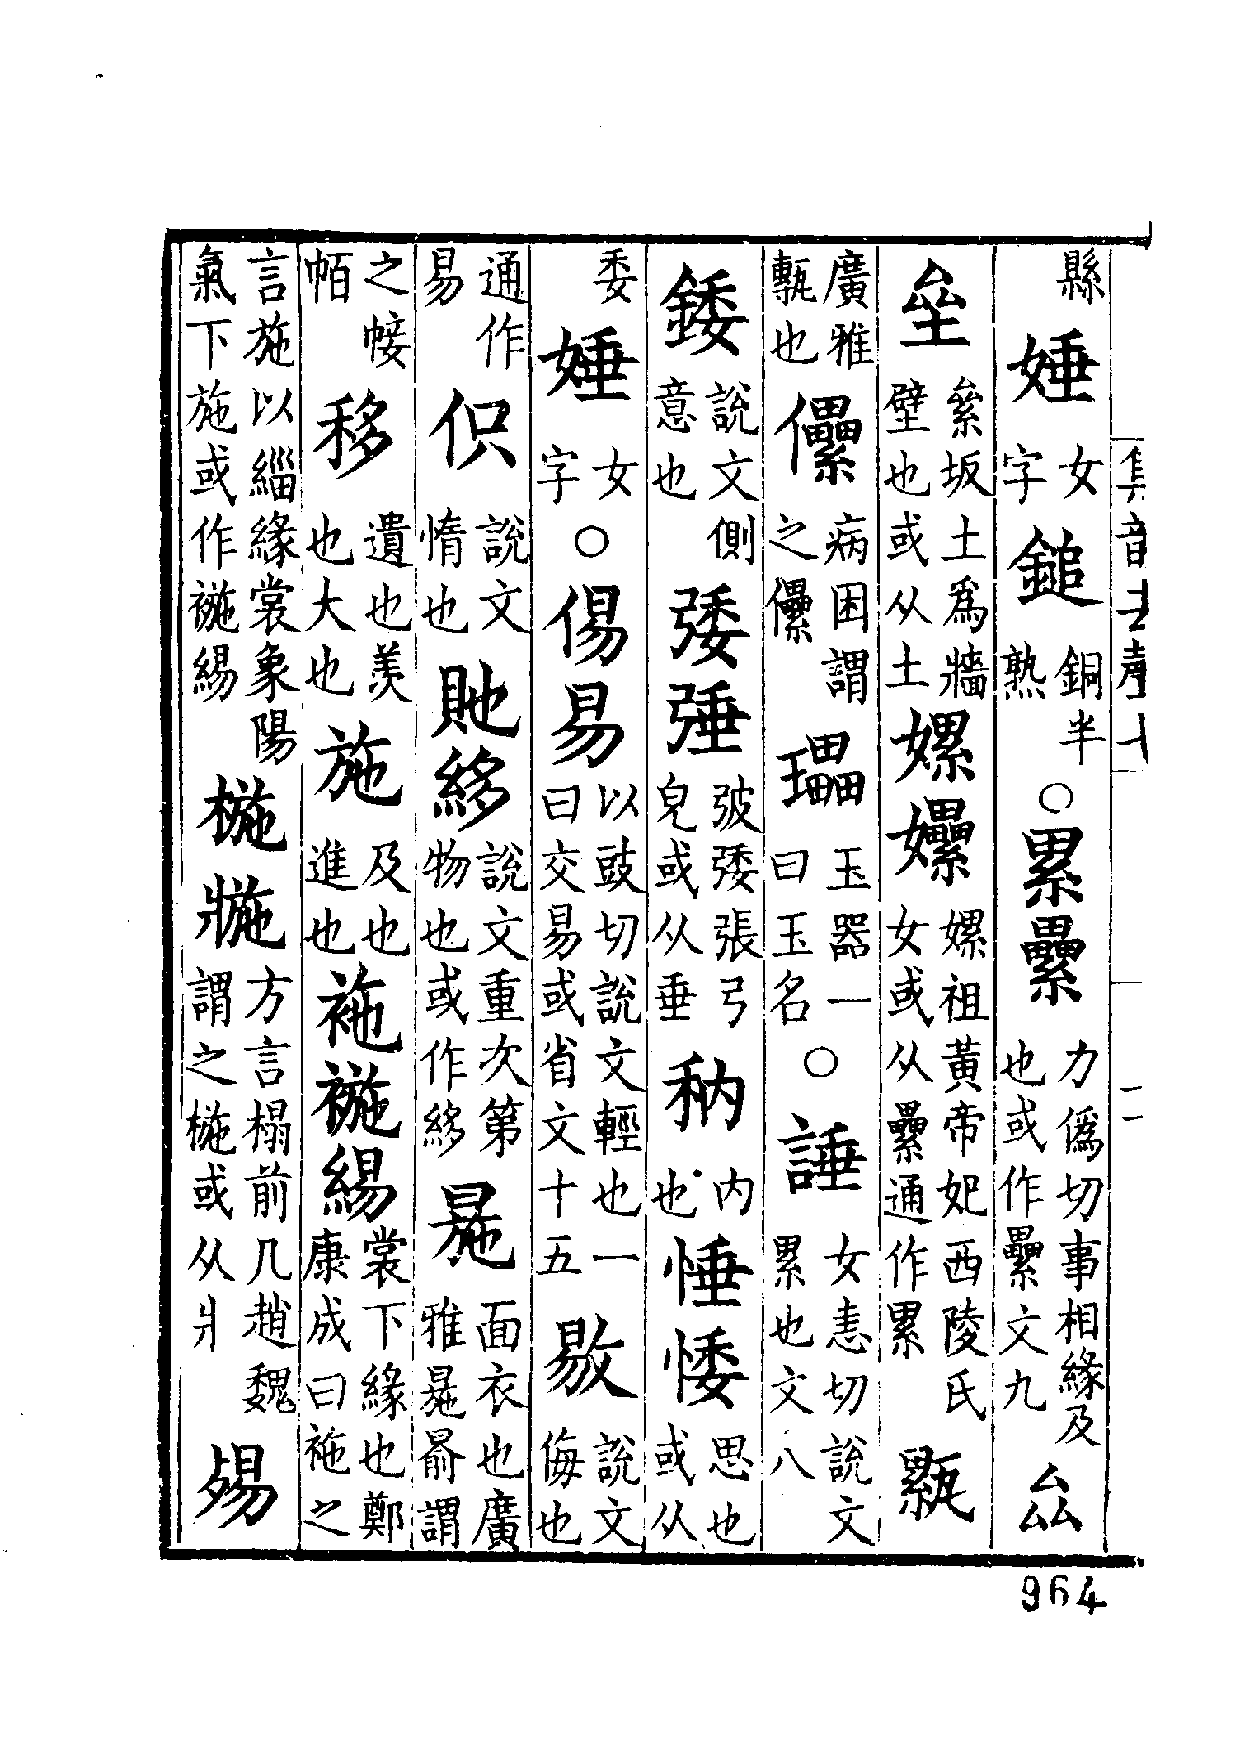 集韻去聲七 二
縣 娷女字 鎚銅半熟 ○累纍力僞切事相緣及也或作纍文九 厽
垒絫坂土爲牆壁也或从土 嫘㜼嫘祖黃帝妃西陵氏女或从纍通作累 㼍
廣雅㼍也 儽病困謂之儽 瓃玉器一曰玉名 ○諈女恚切說文累也文八
錗說文側意也 㢻弡㢼㢻張弓皃或从垂 䄲內也 㥨㥬思也或从
委 娷女字 ○傷易以豉切說文輕也一曰交易或省文十五 敡說文侮也
通作易 伿說文惰也 貤䋾說文重次第物也或作䋾 暆面衣也廣雅暆䎡謂
之㡋帞 移遺也羨也大也 施及也進也 袘䙾緆裳下緣也鄭康成曰袘之
言施以緇緣裳象陽氣下施或作䙾緆 椸㸣方言榻前几趙魏謂之椸或从爿 㑥
964